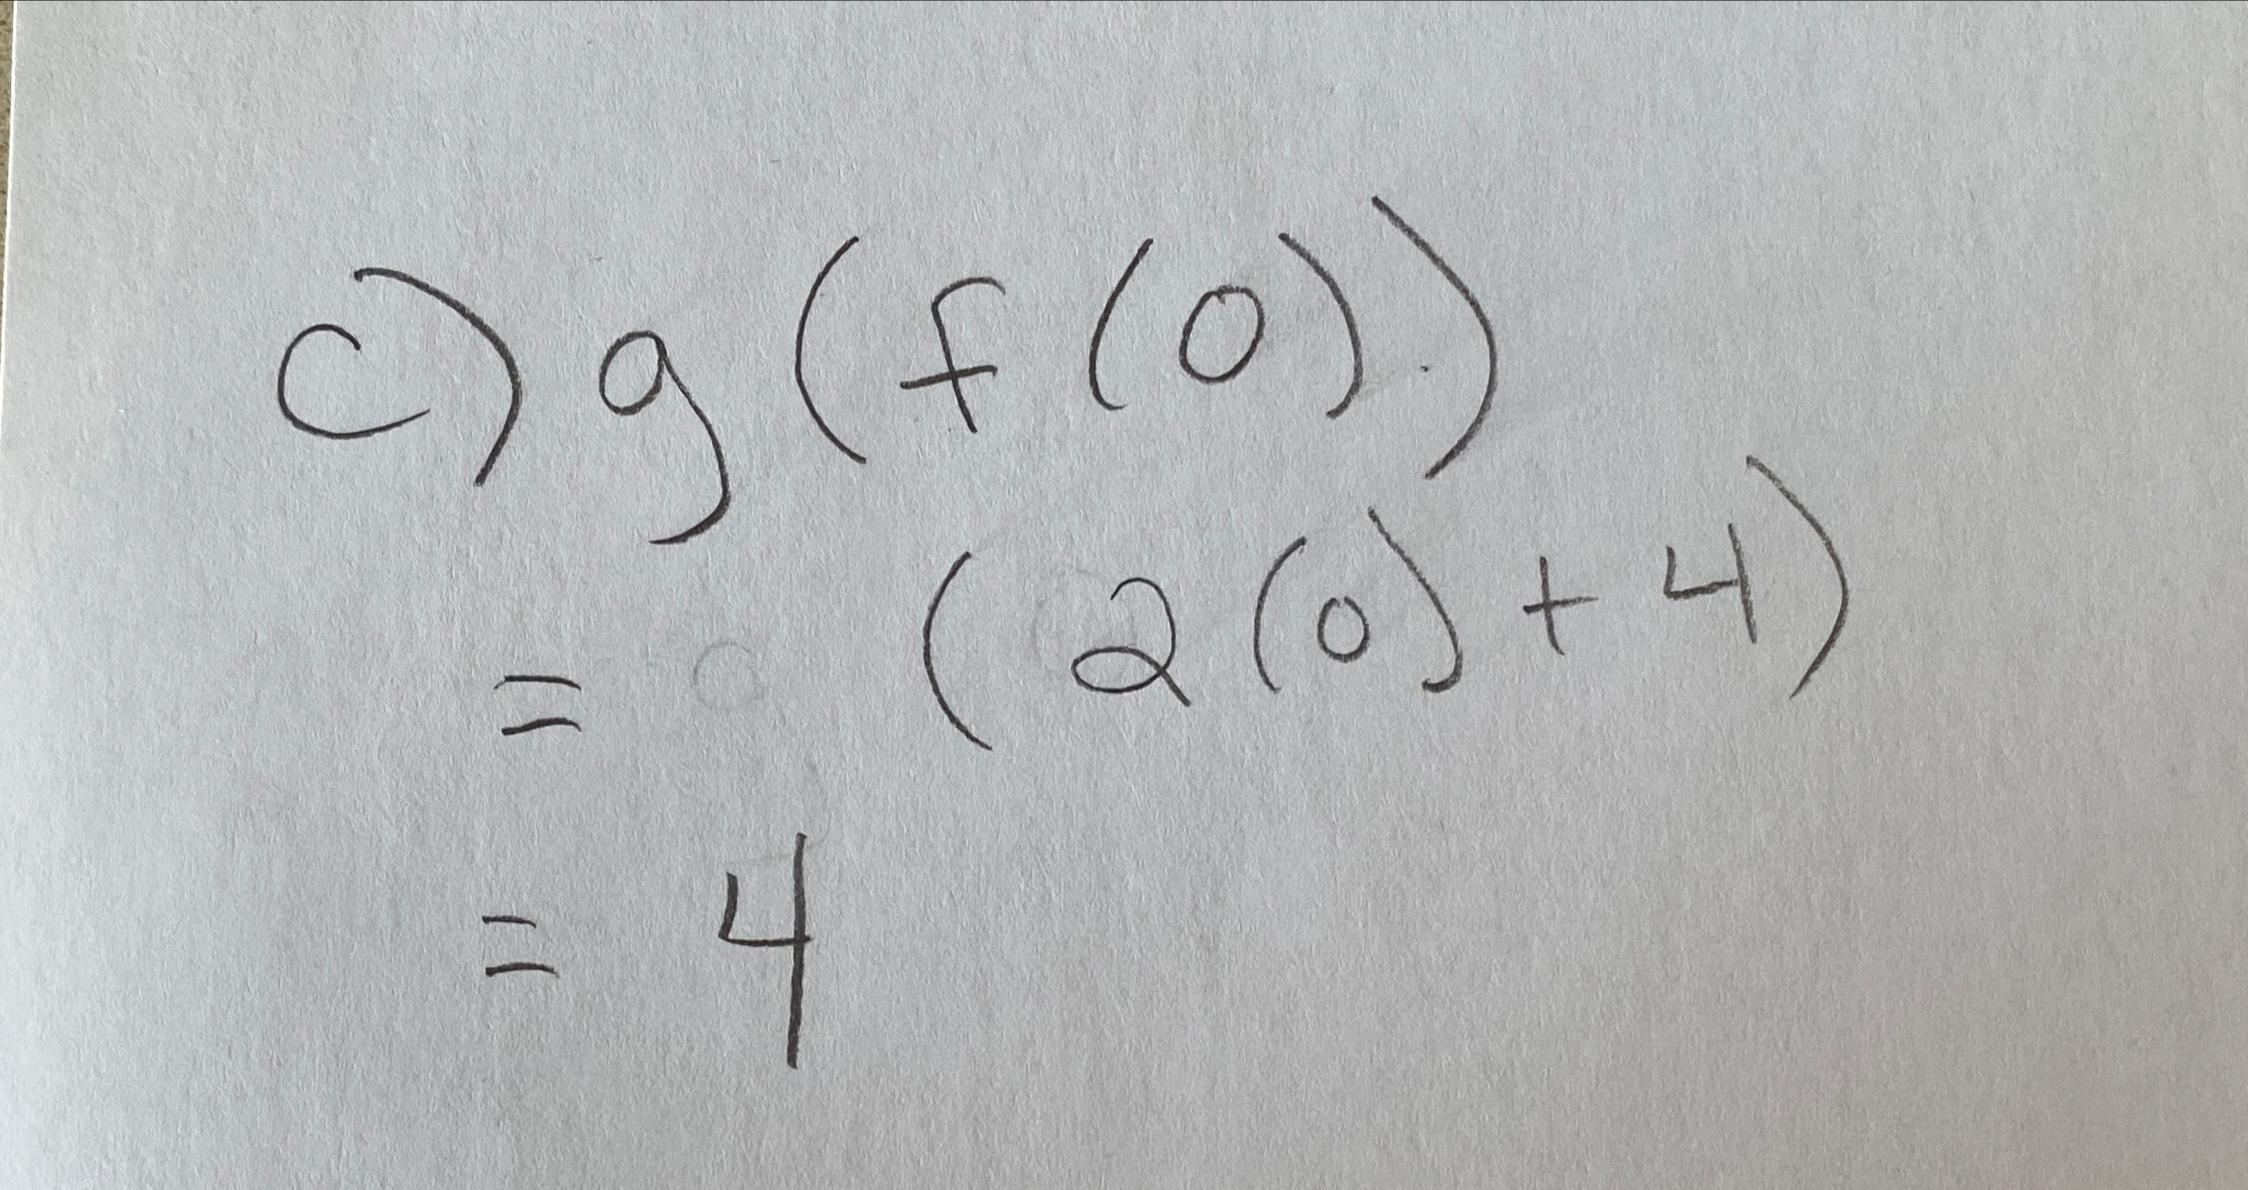 c) g(f(0))
= (2(0)+4)
= 4